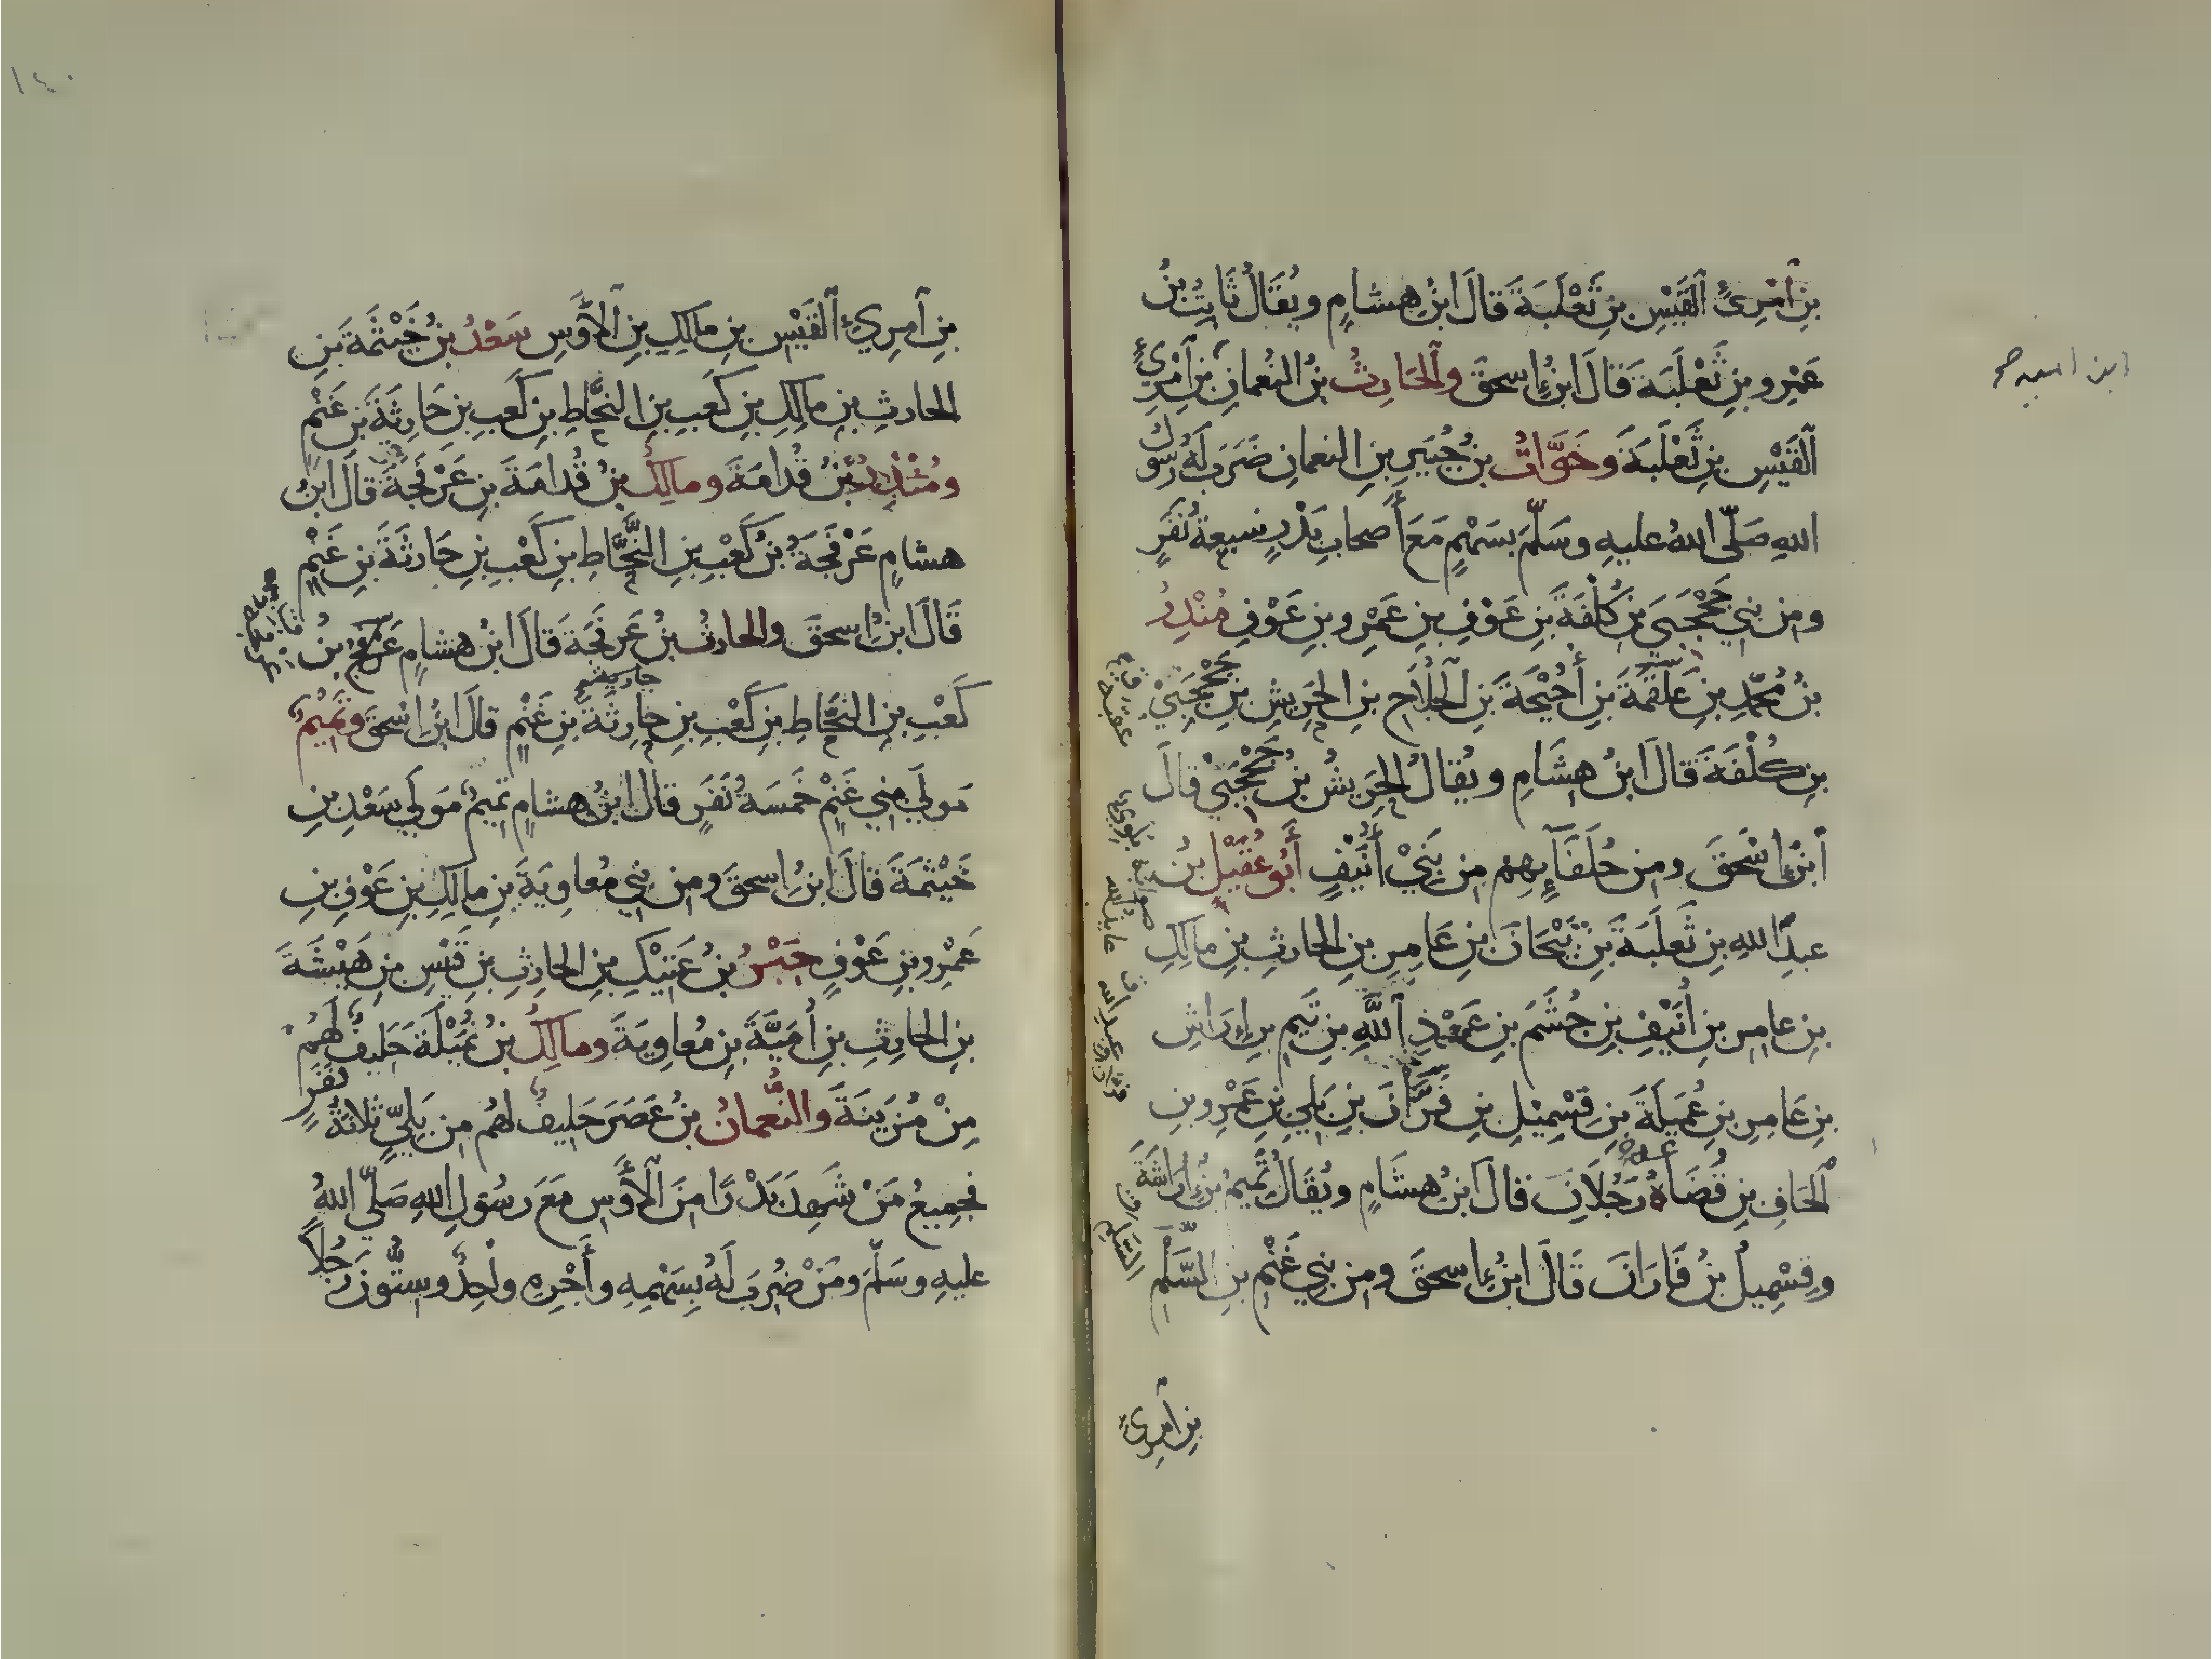 بِنِ ٱمْرِئِ ٱلْقَيْسِ بنِ ثَعْلَبَةَ قَالَ ابنُ هِشامٍ ويُقَالُ ثَابِتُ بنُ
عَمْرِو بنِ ثَعْلَبَةَ قَالَ ابنُ إسحقَ وٱلحَارِثُ بنُ النُعمانِ بنِ ٱمْرِئِ
ٱلقَيْسِ بنِ ثَعْلَبَةَ وخَوَّاتُ بنُ جُبَيرِ بنِ النعمانِ ضَرَبَ لَهُ رسولُ
اللهِ صَلَّى اللهُ عليهِ وسَلَّمَ بسَهْمٍ مَعَ أَصحابِ بَدْرٍ سبعةُ نَفَرٍ
ومِن بني جَحْجَبَى بنِ كُلْفَةَ بنِ عَوْفِ بنِ عَمْرِو بنِ عَوْفٍ مُنْذِرُ
بنُ مُحمَّدِ بنِ عُقْبَةَ بنِ أُحَيْحَةَ بنِ ٱلجُلَاحِ بنِ الحَرِيشِ بنِ جَحْجَبَيْ
بنِ كُلْفَةَ قالَ ابنُ هِشَامٍ ويُقالُ الحَرِيشُ بنُ جَحْجَبَيْ قالَ
ٱبنُ إسْحَقَ ومِن حُلَفَآئِهِم مِن بَنِيْ أُنَيْفٍ أَبُو عُقَيْلِ بنُ
عبدِ اللهِ بنِ ثَعلَبَةَ بنِ بَيْحَانَ بنِ عَامِرِ بنِ الحارثِ بنِ مالكِ
بنِ عامِرِ بنِ أُنَيْفِ بنِ جُشَمَ بنِ عَوْذِ ٱللَّهِ بنِ تَيمِ بنِ إِرَاشِ
بنِ عَامِرِ بنِ عُمَيلَةَ بنِ قِسْمِيْلِ بنِ فَرَّانَ بنِ بَلِي بنِ عَمْرِو بنِ
ٱلحَافِ بنِ قُضَاعَةَ رَجُلَانِ قالَ ابنُ هِشَامٍ ويُقَالُ تَمِيمُ بنُ إرَاشَةَ
وقِسْمِيلُ بنُ فَارَانَ قَالَ ابنُ إسحقَ ومِن بَنِي غَنْمِ بنِ السَّلْمِ
بنِ ٱمرئِ
١٤٠
بنِ ٱمرِئِ ٱلقَيْسِ بنِ مالكِ بنِ ٱلأَوْسِ سَعْدُ بنُ خَيْثَمَةَ بنِ
الحارثِ بنِ مالكِ بنِ كَعبِ بنِ النحَّاطِ بنِ كَعبِ بنِ حَارِثَةَ بنِ غَنْمٍ
ومُنْذِرُ بنُ قُدامَةَ ومالكُ بنُ قُدامَةَ بنِ عَرْفَجَةَ قالَ ابنُ
هشامٍ عَرْفَجَةُ بنُ كَعْبِ بنِ النَّحَّاطِ بنِ كَعْبِ بنِ حَارثَةَ بنِ غَنْمٍ
قَالَ ابنُ إسحقَ والحارثُ بنُ عَرفَجَةَ قَالَ ابنُ هشامٍ عَرفَجَةُ بنُ
كَعْبِ بنِ النحَّاطِ بنِ كَعْبِ بنِ حارِثَةَ بنِ غَنْمٍ قالَ ابنُ إسْحقَ وتَمِيْمٌ
مَولَى بني غَنْمٍ خَمسَةُ نَفَرٍ قالَ ابنُ هشامٍ تميمٌ مَولَى سَعْدِ بنِ
خَيْثَمَةَ قالَ ابنُ إسحقَ ومِن بني مُعاوِيَةَ بنِ مالكِ بنِ عَوْفِ بنِ
عَمْرِو بنِ عَوْفٍ جَبْرُ بنُ عَتِيْكِ بنِ الحارِثِ بنِ قَيْسِ بنِ هَيْشَةَ
بنِ الحارِثِ بنِ أُمَيَّةَ بنِ مُعاويَةَ ومالكُ بنُ نُمَيْلَةَ حَليفٌ لَهُمْ
مِنْ مُزَينَةَ والنُّعمانُ بنُ عَصَرَ حَليفٌ لهُم مِن بَلِيٍّ ثلاثةُ نَفَرٍ
فجمِيعُ مَنْ شَهِدَ بَدْرًا مِنَ ٱلأَوْسِ مَعَ رسُولِ اللهِ صَلَّى اللهُ
عليهِ وسَلَّمَ ومَنْ ضُرِبَ لَهُ بِسَهْمِهِ وأَجْرِهِ واحِدٌ وسِتُّونَ رَجُلاً